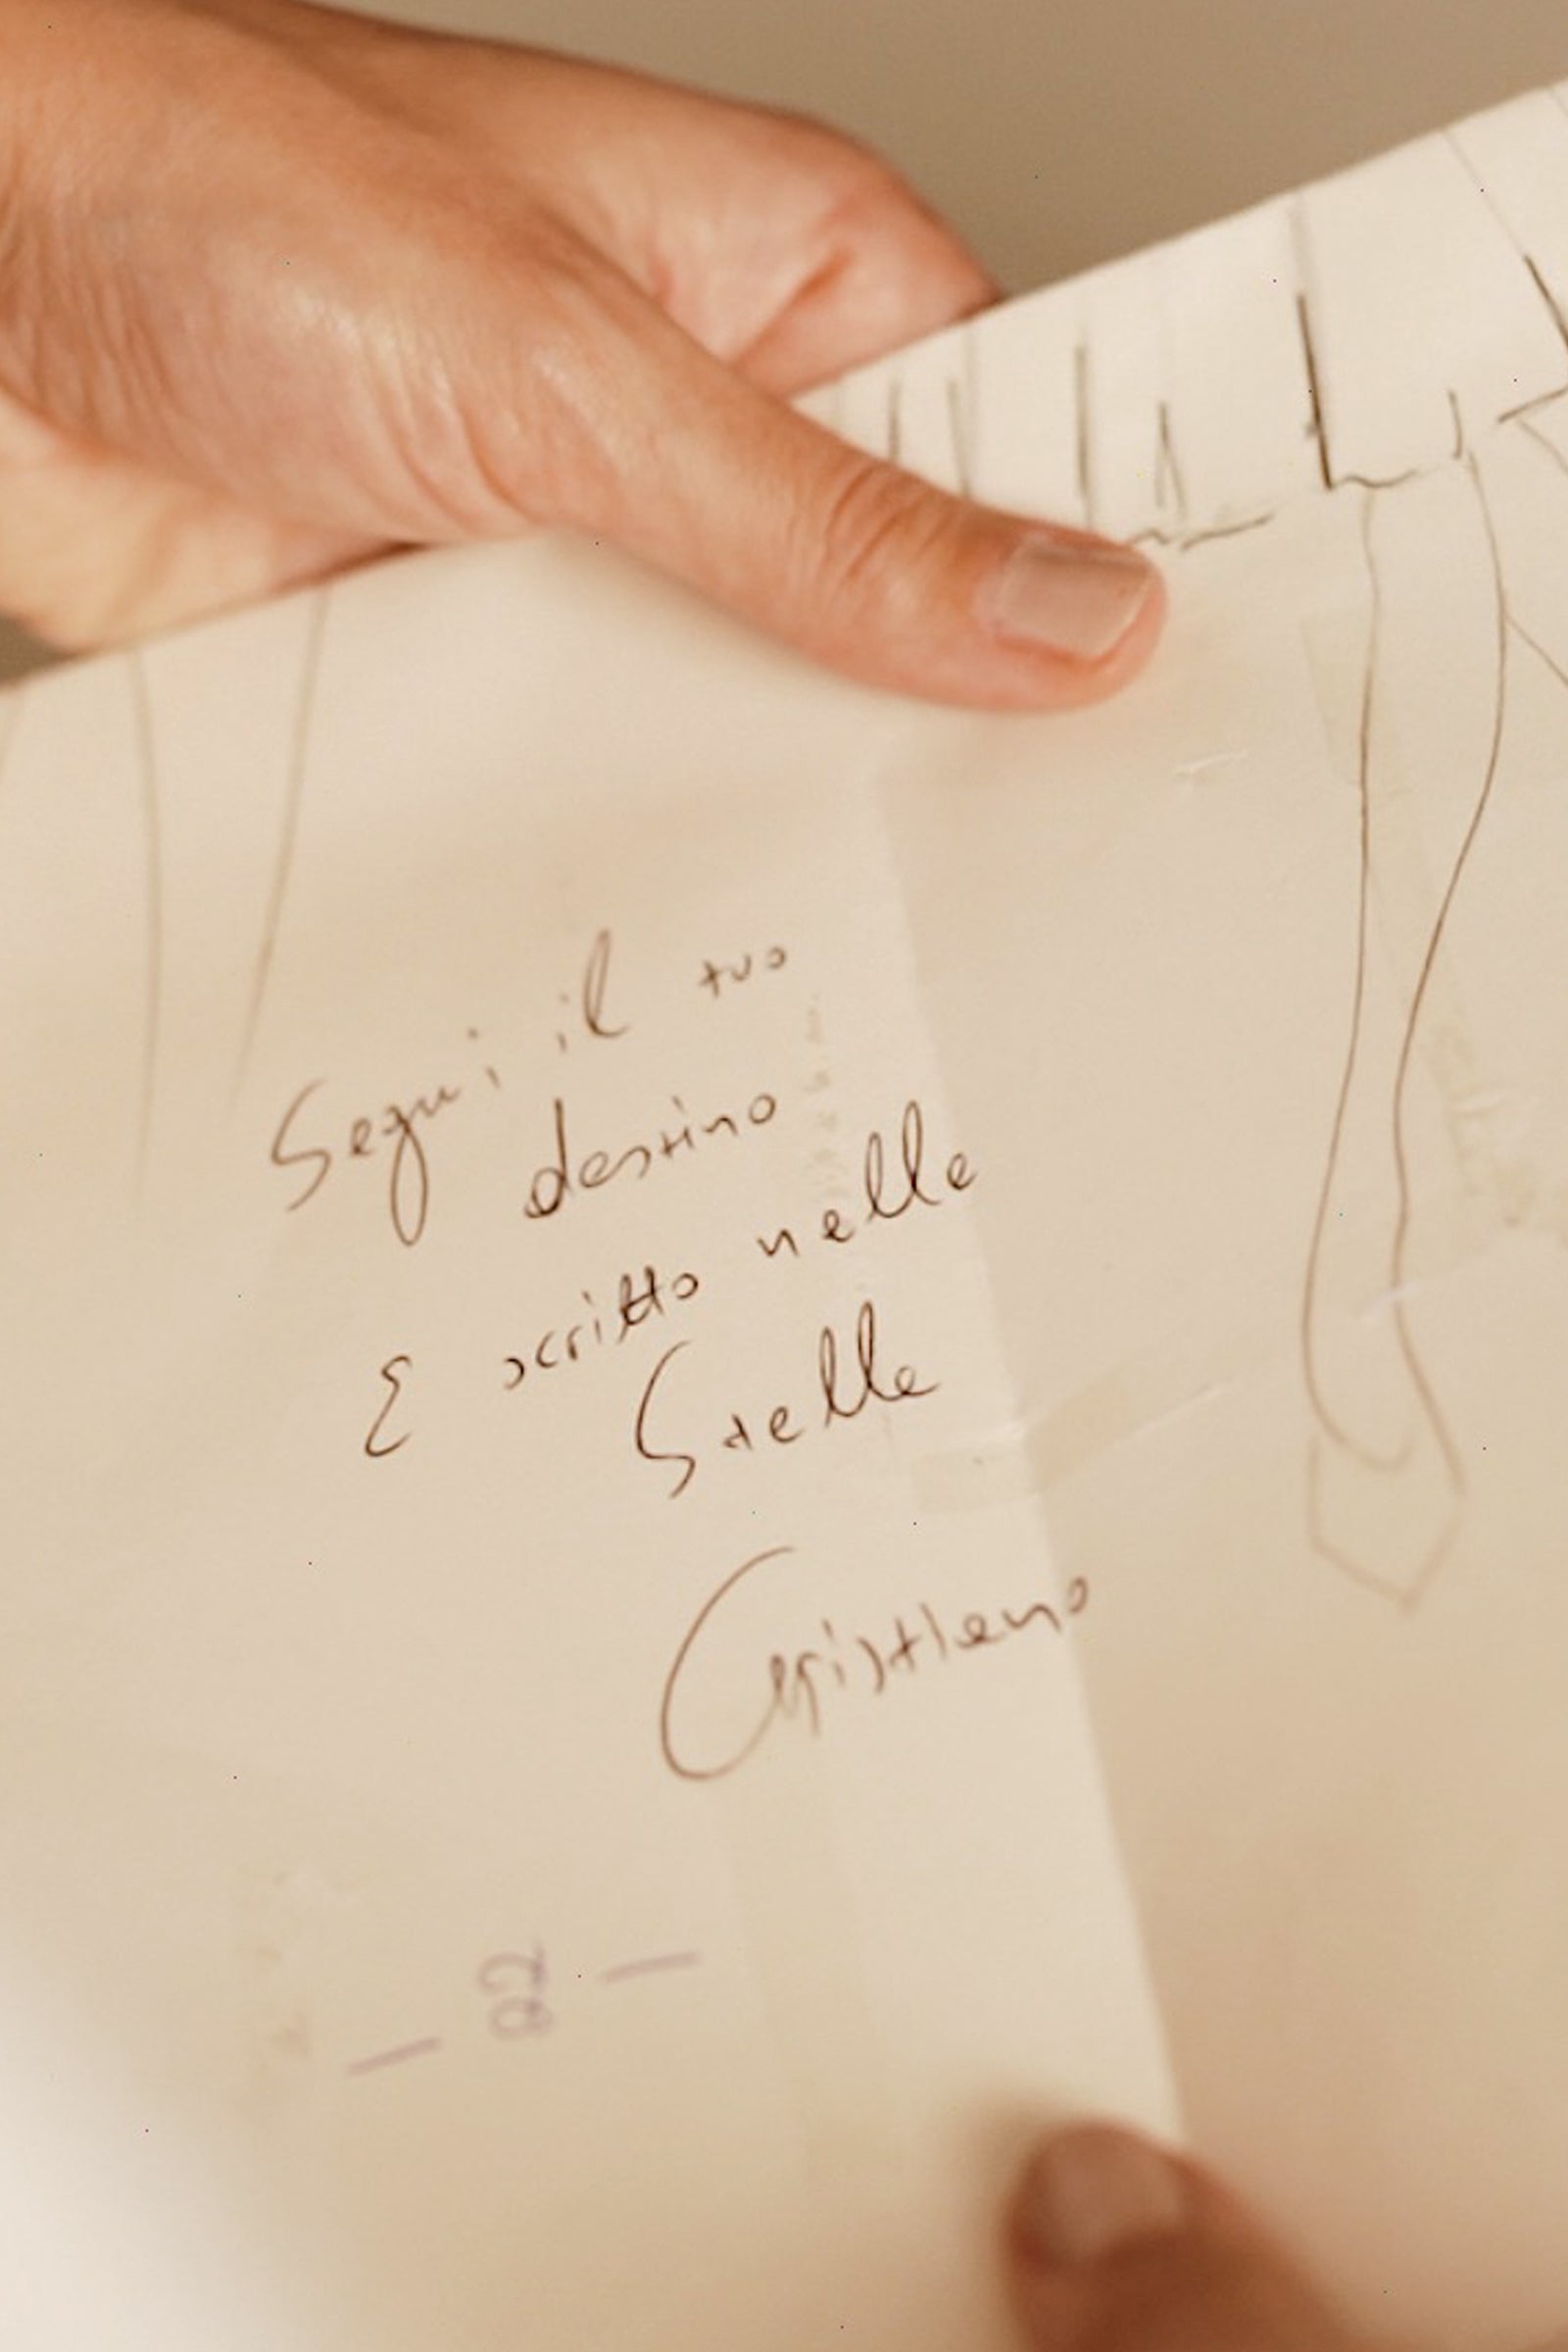 Segui il tuo
destino
E scritto nelle
Stelle
Cristiano
- 22 -